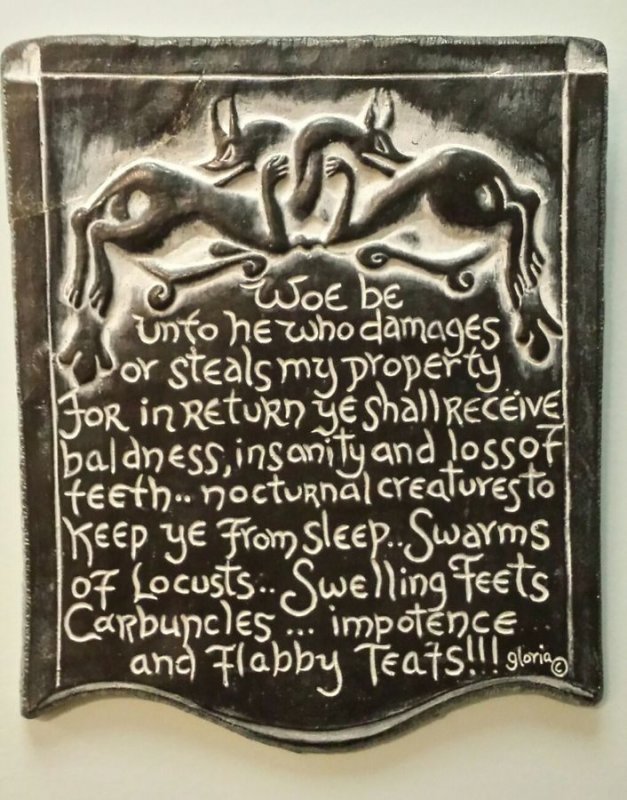 Woe be
unto he who damages
or steals my property
for in return ye shall receive
baldness, insanity and loss of
teeth.. nocturnal creatures to
Keep ye from sleep.. Swarms
of Locusts.. Swelling Feets
Carbuncles ... impotence ..
and Flabby Teats!!! gloria ©